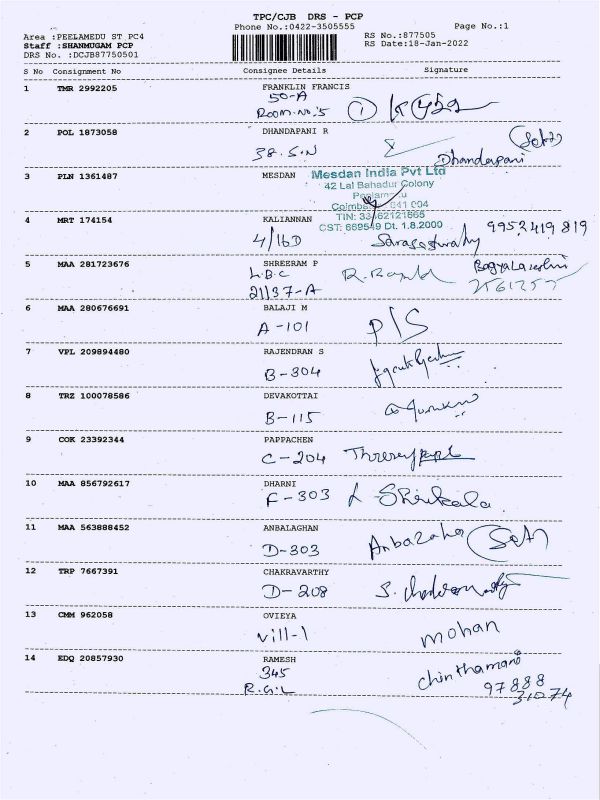 TPC/CJB DRS - PCP
Phone No.:0422-3505555 Page No.:1
Area :PEELAMEDU ST PC4 RS No.:877505
Staff :SHANMUGAM PCP RS Date:18-Jan-2022
DRS No. :DCJB87750501
S No Consignment No Consignee Details Signature
1 TMR 2992205 FRANKLIN FRANCIS
50-A
Room.No.5 1
2 POL 1873058 DHANDAPANI R
38.S.N Dhandapani
3 PLN 1361487 MESDAN Mesdan India Pvt Ltd
42 Lal Bahadur Colony
641 004
TIN:
CST: 669549 Dt. 1.8.2000
4 MRT 174154 KALIANNAN
4/16D Saraswathy 9952419819
5 MAA 281723676 SHREERAM P
L.B.C
21/37-A
6 MAA 280676691 BALAJI M
A-101 P/S
7 VPL 209894480 RAJENDRAN S
B-304
8 TRZ 100078586 DEVAKOTTAI
B-115
9 COK 23392344 PAPPACHEN
C-204
10 MAA 856792617 DHARNI
F-303 Shrikala
11 MAA 563888452 ANBALAGHAN
D-303
12 TRP 7667391 CHAKRAVARTHY
D-208
13 CMM 962058 OVIEYA
Vill-1 mohan
14 EDQ 20857930 RAMESH
345 chinthamani
R.G.L 97888
31074